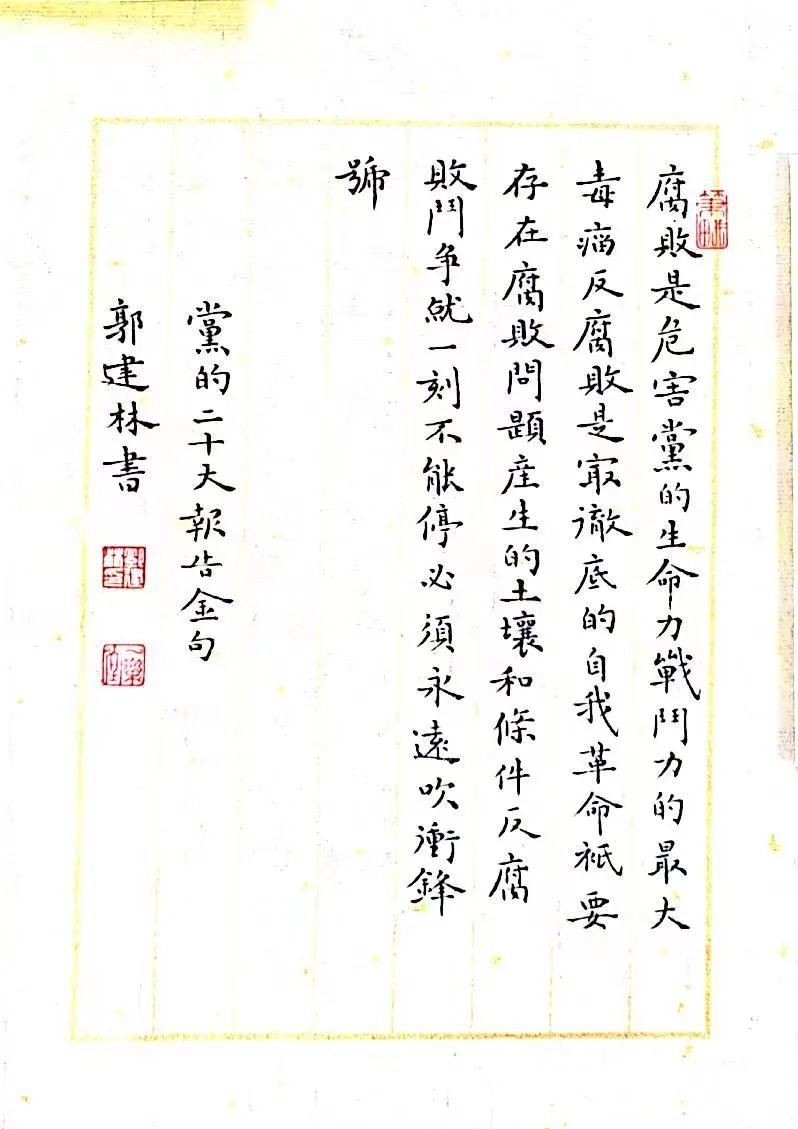 腐敗是危害黨的生命力戰鬥力的最大
毒瘤反腐敗是㝡徹底的自我革命衹要
存在腐敗問題産生的土壤和條件反腐
敗鬥争就一刻不能停必須永遠吹衝鋒
號
黨的二十大報告金句
郭建林書